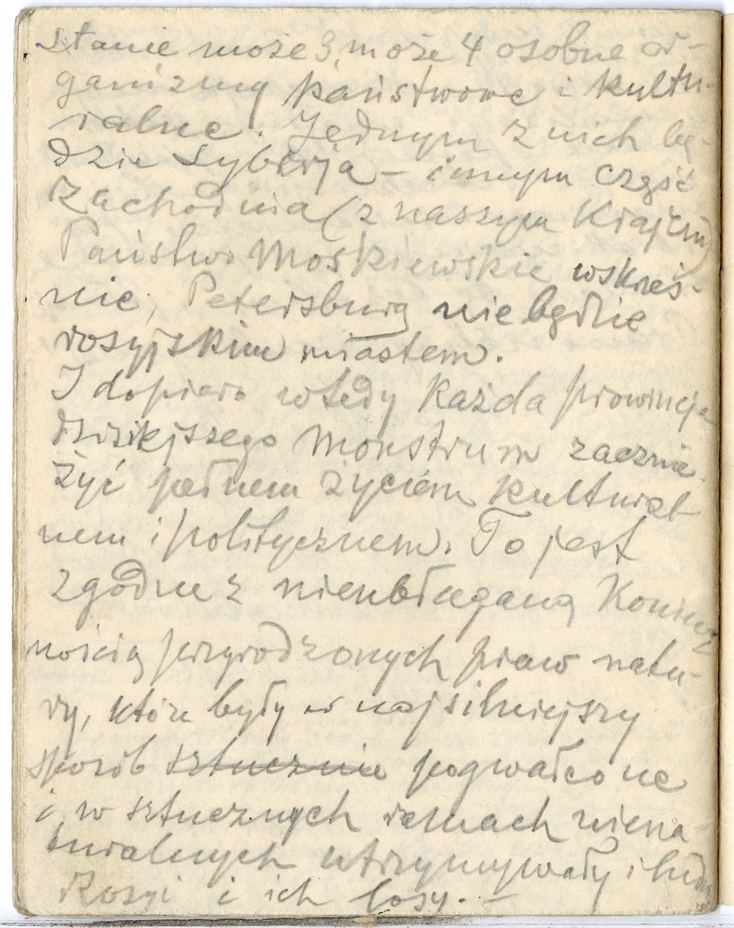 stanie może 3, może 4 osobne or-
ganizmy państwowe i kultu-
ralne. Jednym z nich bę-
dzie Syberja – innym część
Zachodnia (z naszym Krajem)
Państwo Moskiewskie wskrześ-
nie, Petersburg nie będzie
rosyjskim miastem.
I dopiero wtedy każda prowincja
dzisiejszego monstrum zacznie
żyć pełnem życiem kultural-
nem i politycznem. To jest
zgodne z nieubłaganą koniecz
nością przyrodzonych praw natu-
ry, które były w najsilniejszy
sposób sztucznie pogwałcone
i w sztucznych ramach niena-
turalnych utrzymywały i ludy
Rosyi i ich losy. –